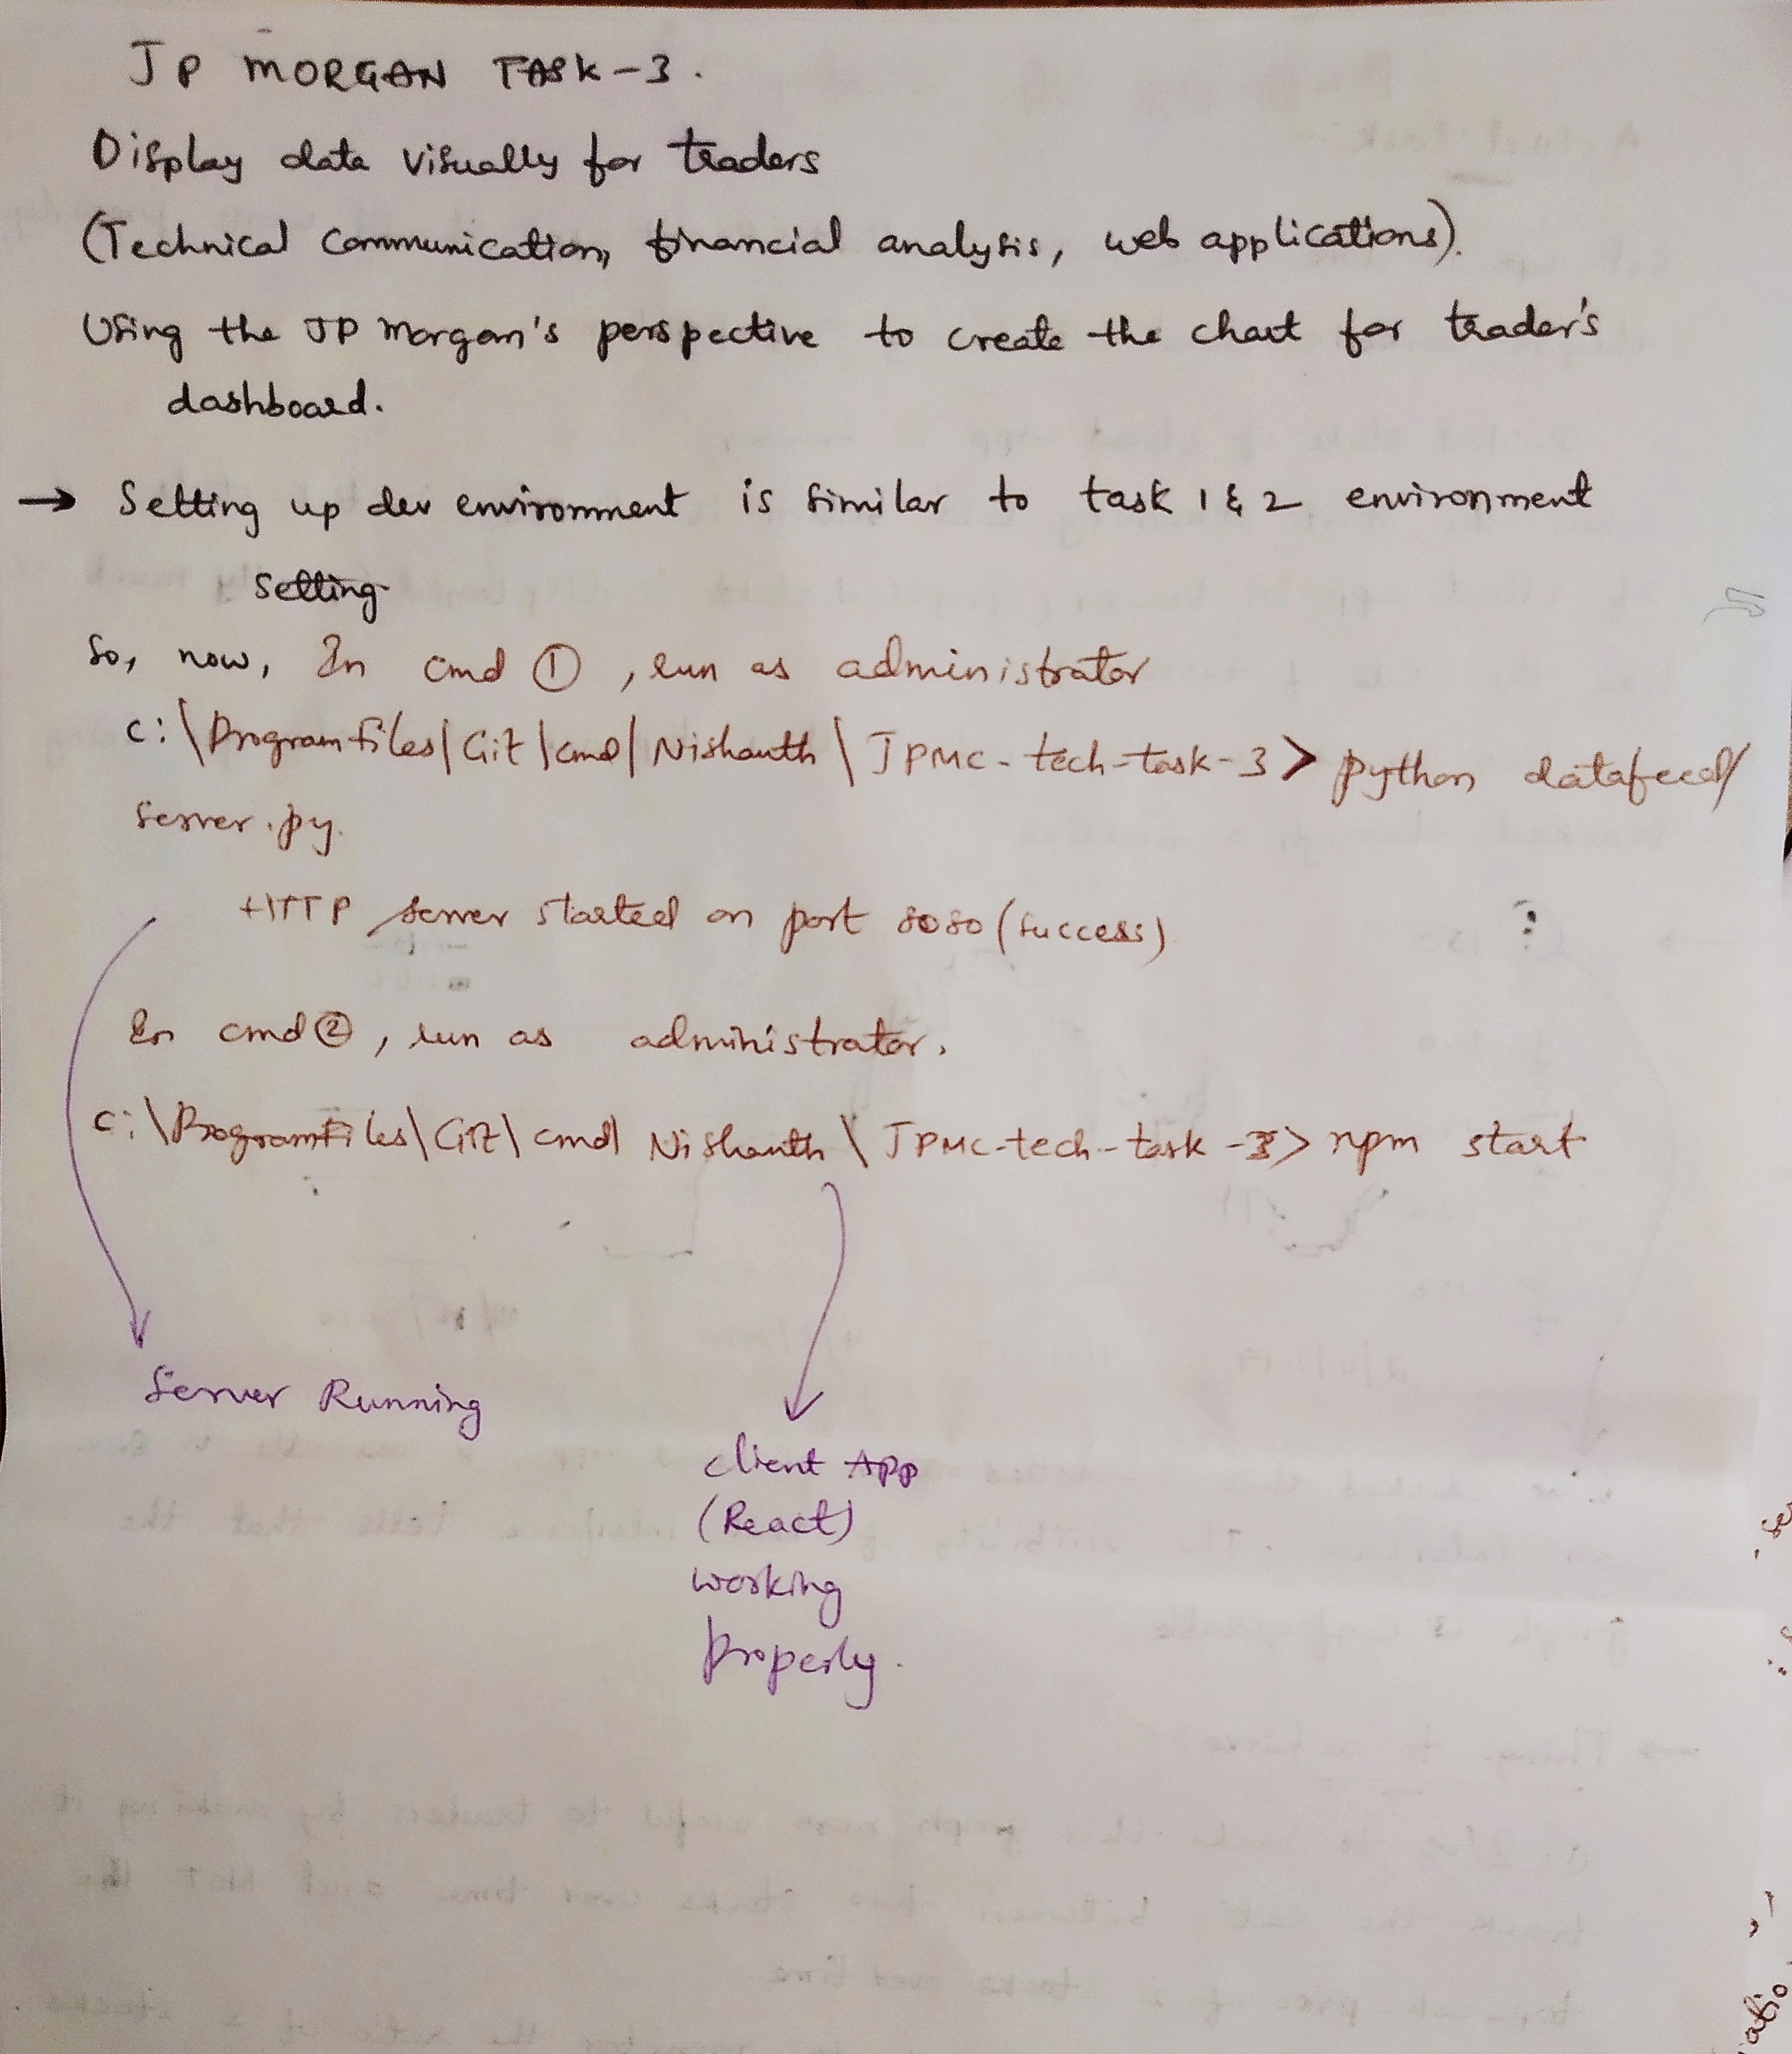 JP MORGAN TASK-3.
Display data visually for traders
(Technical Communication, financial analysis, web applications).
Using the JP Morgan's perspective to create the chart for trader's
dashboard.
→ Setting up dev environment is similar to task 1 & 2 environment
setting
So, now, In cmd ①, run as administrator
C:\Program files\Git\cmd\Nishanth\JPMC-tech-task-3> python datafeed/
server.py.
HTTP server started on port 8080 (success)
In cmd ②, run as administrator.
C:\Program Files\Git\cmd\Nishanth\JPMC-tech-task-3> npm start
Server Running
client App
(React)
working
properly.